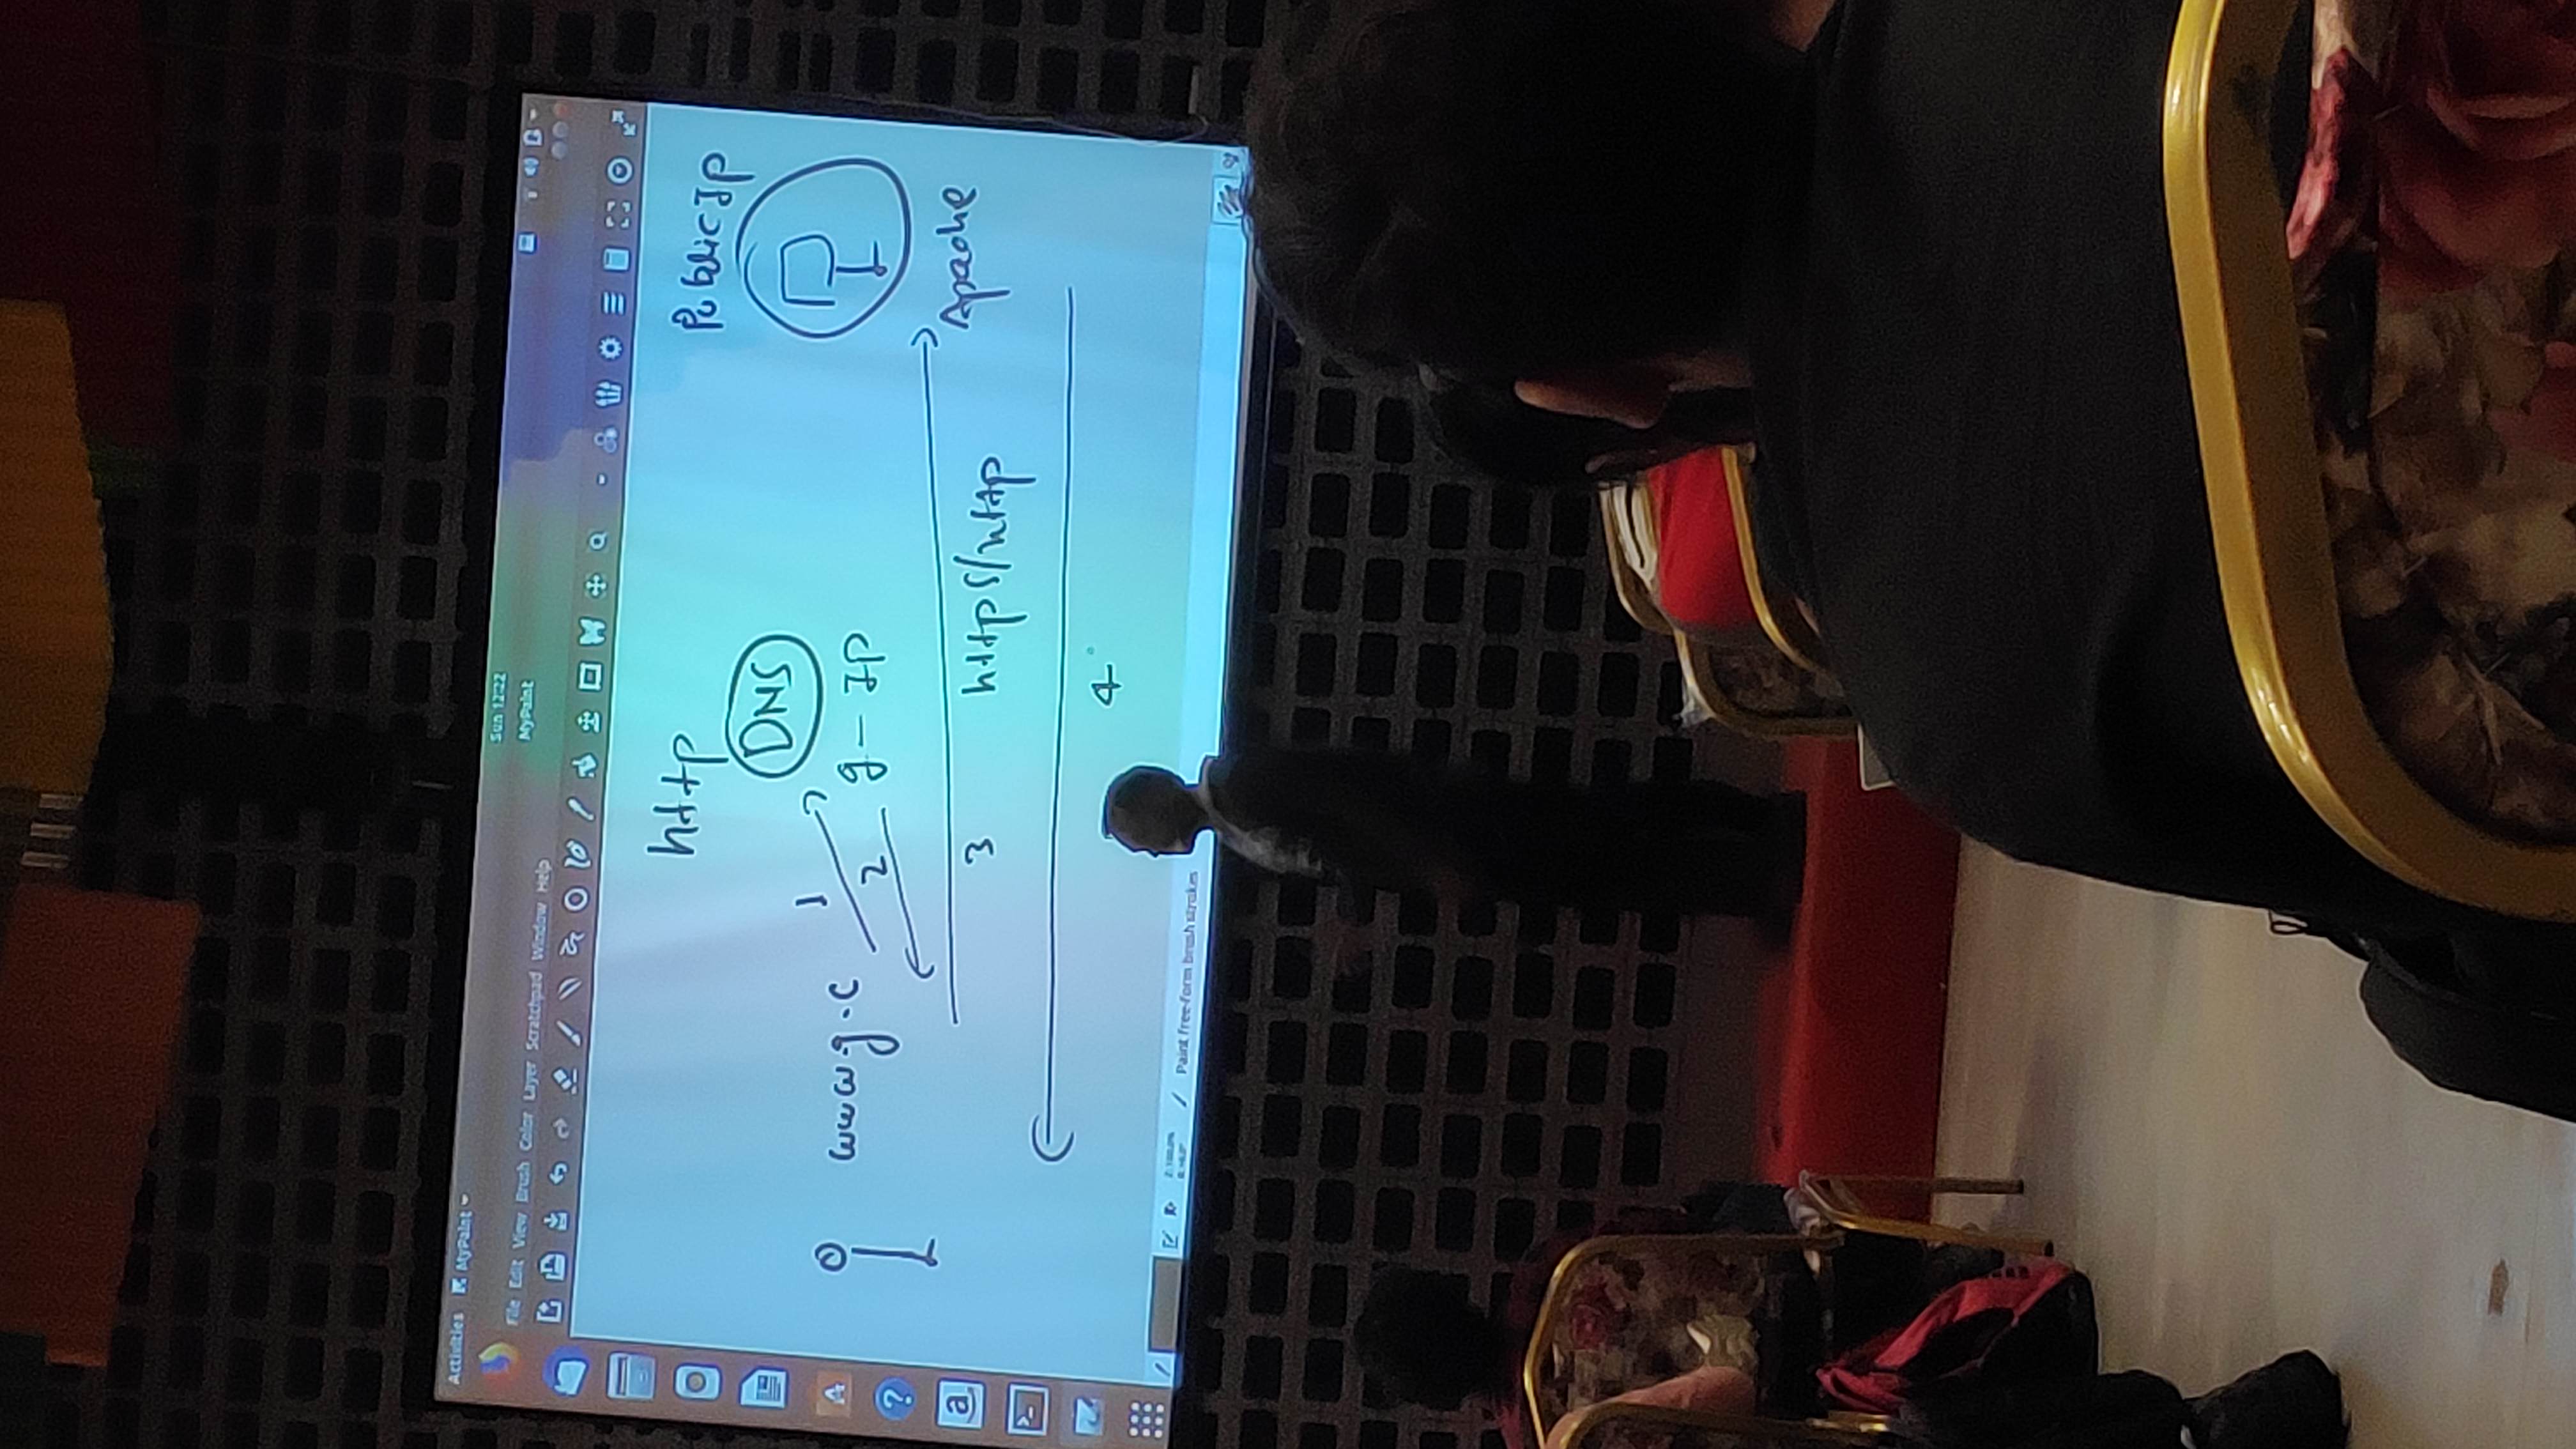 Activities MyPaint
Sun 12:22
MyPaint
File Edit View Brush Color Layer Scratchpad Window Help
http
Public Ip
DNS
1
www.g.c
2
g - Ip
3
https/http
Apache
4
A
?
a
>_
Paint free-form brush strokes